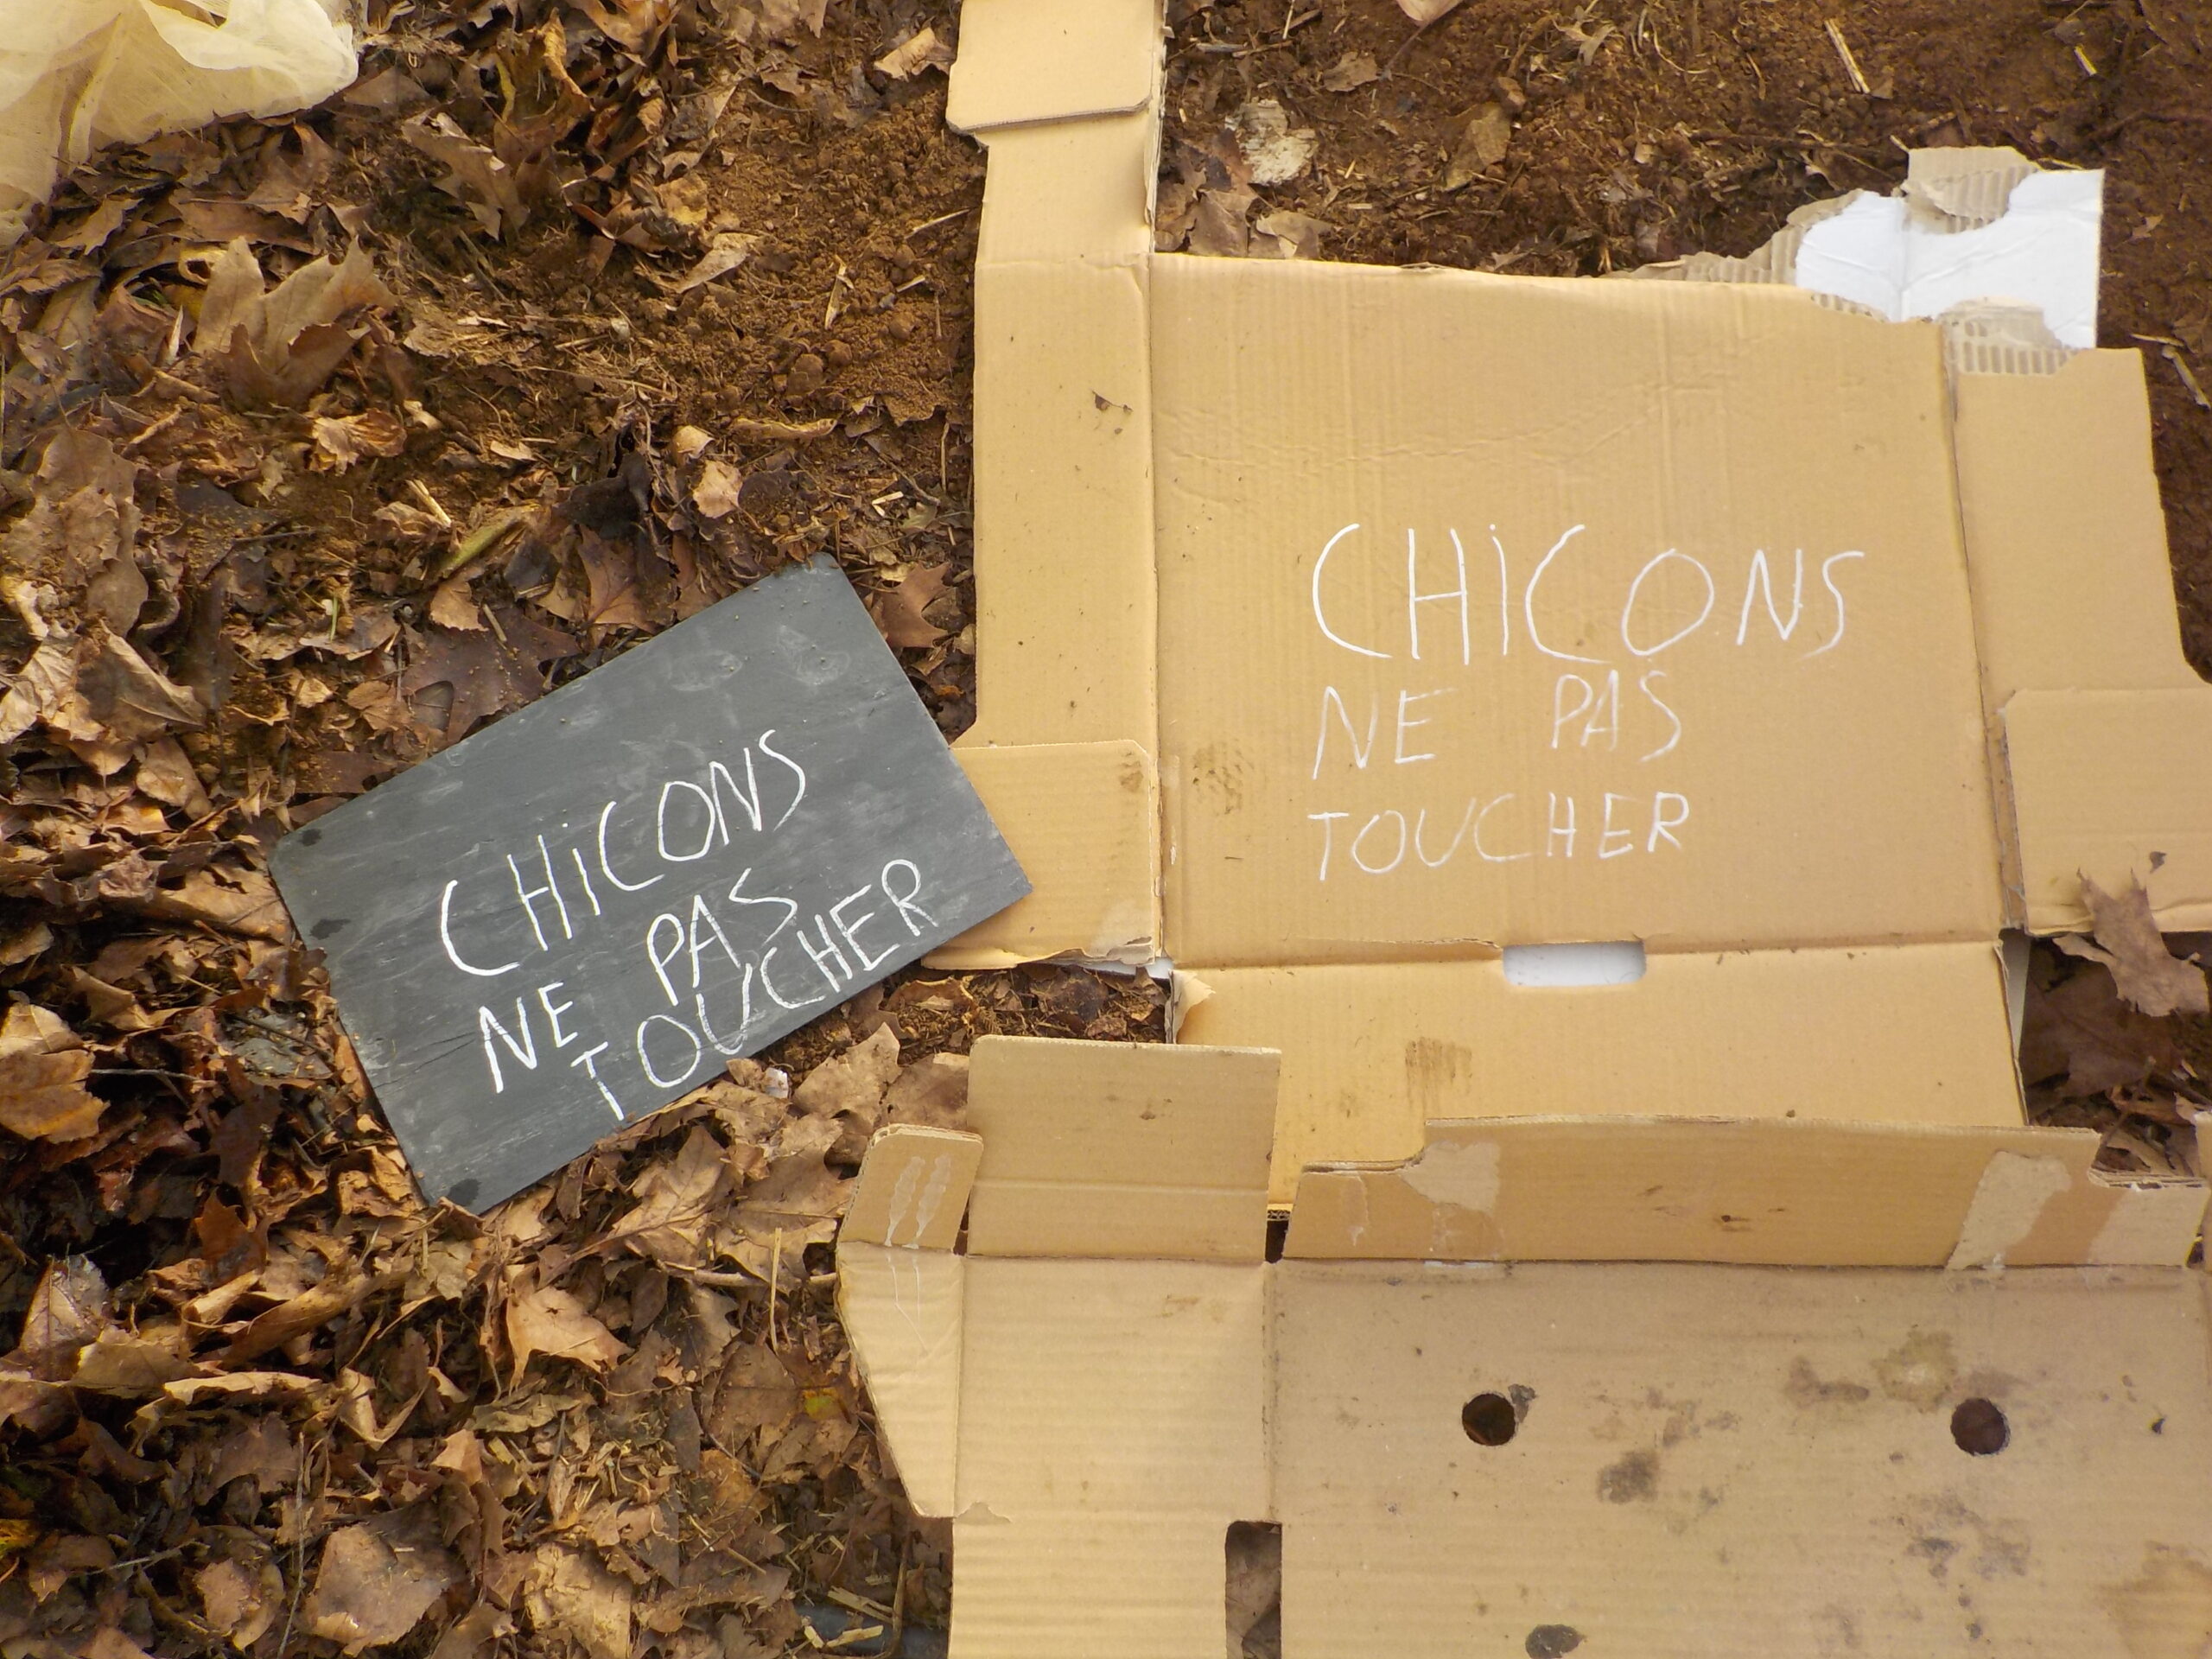 CHiCONS
NE PAS
TOUCHER
CHiCONS
NE PAS
TOUCHER